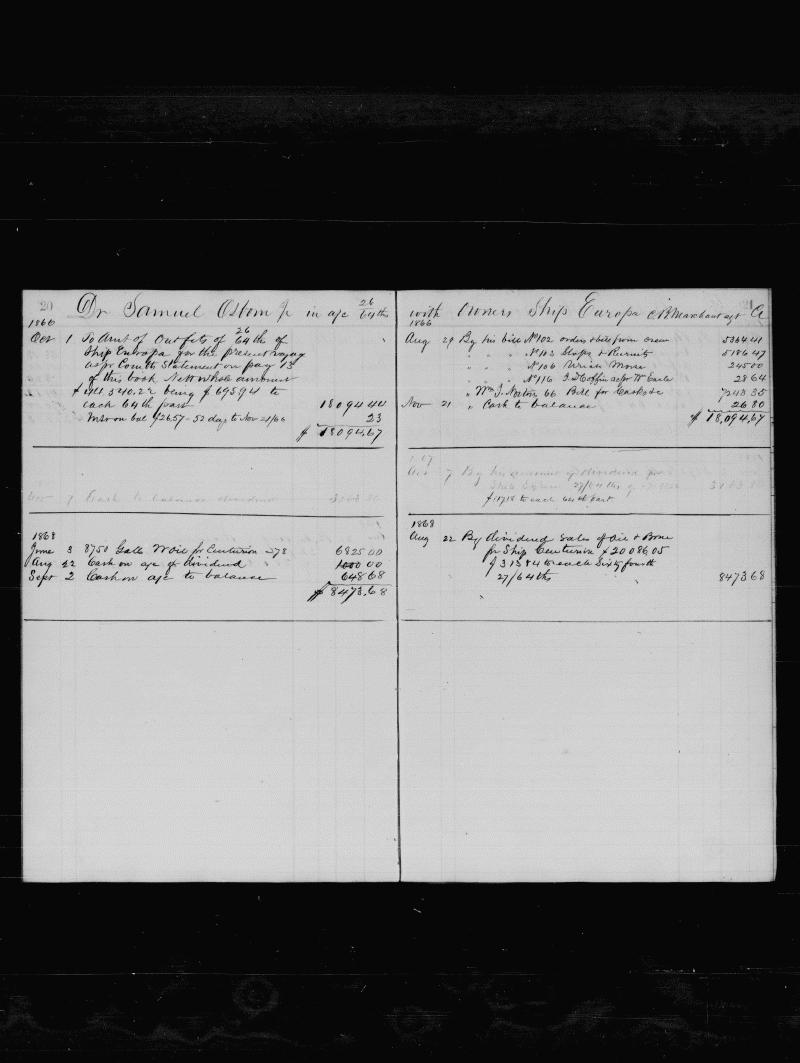 20 Dr Samuel Osborn Jr in a/c 26/64ths
1866
Oct 1 To Amt of Outfits of 26/64th of
Ship Europa for the present voyage
as pr Comtts Statement on pay 13
of this book Nett whole amount
being $ 695 94 to
each 64th part 18094 44
Int on bal $26.57 - 52 days to Nov 21/66 23
$ 18094.67
7 Cash to balance dividend
1868
June 3 8750 Galls W Oil for Centurion 78 6825 00
Aug 22 Cash on a/c of dividend 1000 00
Sept 2 Cash on a/c to balance 648 68
$ 8473.68
with owners Ship Europa C B Marchant agt Cr
1866
Aug 29 By his bill No 102 orders & bills from crew 5364 41
" " " No 103 Slops & Recruits 5186 47
" " " No 106 245 00
" " " No 116 28 64
" Wm J. Norton 66 Bill for Casks &c 7243 35
Nov 21 " Cash to balance 26 80
$ 18,094.67
7 By his account of dividend for
27/64ths
$ to each 64th part
1868
Aug 22 By dividend Sales of Oil & Bone
for Ship Centurion $ 20086 05
$ 313 84 to each Sixty fourth
27/64ths 8473 68